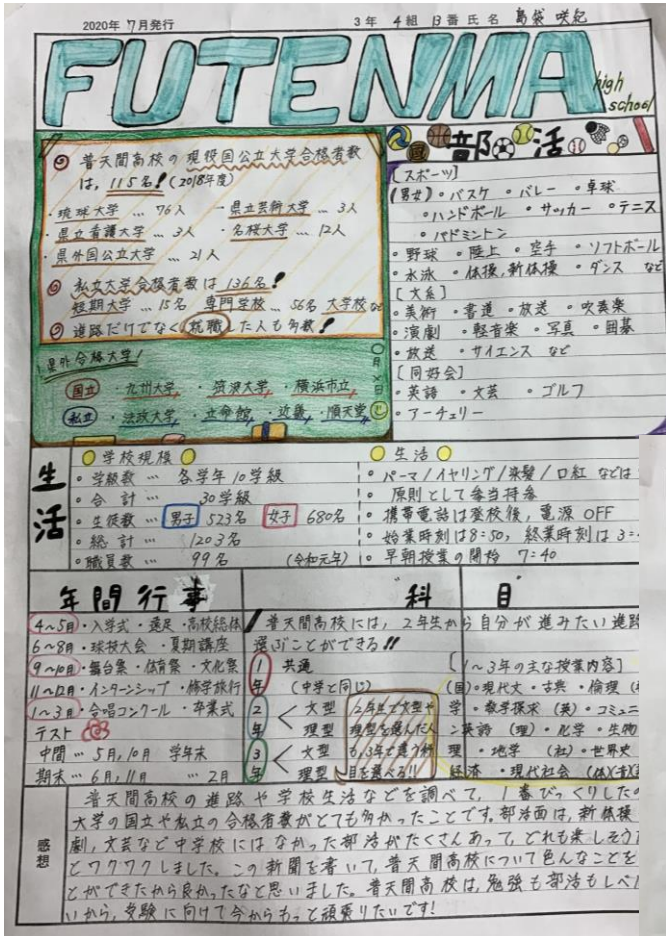 2020年 7月発行
3年 4組 13番 氏名 島袋 咲紀
FUTENMA
high school
◎ 普天間高校の現役国公立大学合格者数
は、115名!(2018年度)
・琉球大学 … 76人 ・県立芸術大学 … 3人
・県立看護大学 … 3人 ・名桜大学 … 12人
・県外国公立大学 … 21人
◎ 私立大学合格者数は 136名!
短期大学 … 15名 専門学校 … 56名 大学校など
◎ 進路だけでなく就職した人も多数!
県外合格大学!
国立 ・九州大学 ・筑波大学 ・横浜市立
私立 ・法政大学 ・立命館 ・近畿 ・順天堂
○月×日
部活
[スポーツ]
(男女)・バスケ ・バレー ・卓球
・ハンドボール ・サッカー ・テニス
・バドミントン
・野球 ・陸上 ・空手 ・ソフトボール
・水泳 ・体操、新体操 ・ダンス など
[文系]
・美術 ・書道 ・放送 ・吹奏楽
・演劇 ・軽音楽 ・写真 ・囲碁
・放送 ・サイエンス など
[同好会]
・英語 ・文芸 ・ゴルフ
・アーチェリー
生活
学校規模
・学級数 … 各学年10学級
・合計 … 30学級
・生徒数 … 男子 523名 女子 680名
・総計 … 1203名
・職員数 … 99名 (令和元年)
生活
・パーマ/イヤリング/染髪/口紅 などは
・原則として毎当持参
・携帯電話は登校後、電源OFF
・始業時刻は8:50、終業時刻は3:
・早朝授業の開始 7:40
年間行事
4~5月・入学式・遠足・高校総体
6~8月・球技大会・夏期講座
9~10月・舞台祭・体育祭・文化祭
11~12月・インターンシップ・修学旅行
1~3月・合唱コンクール・卒業式
テスト
中間 … 5月,10月 学年末
期末 … 6月,11月 … 2月
科目
普天間高校には、2年生から自分が進みたい進路
選ぶことができる!!
1年 共通
(中学と同じ)
2年 < 文型
理型
3年 < 文型
理型
2年生で文型や
理型を選んだ人
も、3年で違う科
目を選べる!!
[1~3年の主な授業内容]
(国)・現代文・古典・倫理
学・数学探求(英)・コミュニ
ン英語(理)・化学・生物
理・地学 (社)・世界史
経済・現代社会 (体)(音)
感想
普天間高校の進路や学校生活などを調べて、1番びっくりしたの
大学の国立や私立の合格者数がとても多かったことです。部活面は、新体操
劇、文芸など中学校にはなかった部活がたくさんあって、どれも楽しそう
とワクワクしました。この新聞を書いて、普天間高校について色んなことを
とができたから良かったなと思いました。普天間高校は、勉強も部活もレベ
いから、受験に向けて今からもっと頑張りたいです!